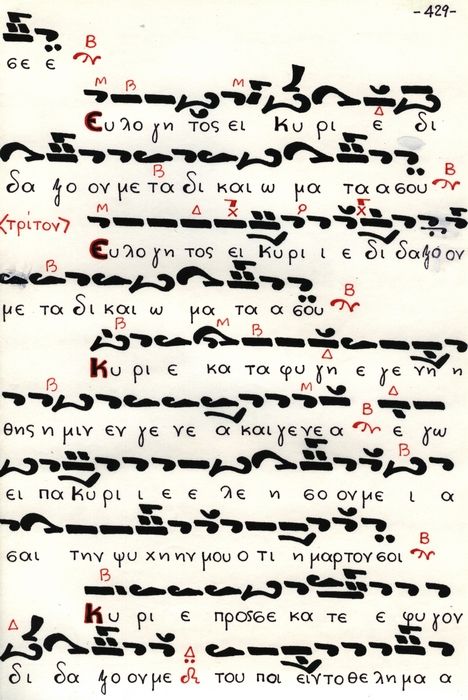 -429-
σε ε
Ευλογητος ει Κυριε δι
δαξοον με τα δικαιωματα α σου
<τρίτον>
Ευλογητος ει Κυριιε διδαξοον
με τα δικαιωματα α σου
Κυριε καταφυγη εγενηη
θης ημιν εν γενεα και γενεα εγω
ειπα Κυριιεελεησοον με ια
σαι την ψυχηην μου οτι ημαρτον σοι
Κυριε προς σε κατεεφυγον
διδαξοον με του ποιειν το θελημα α